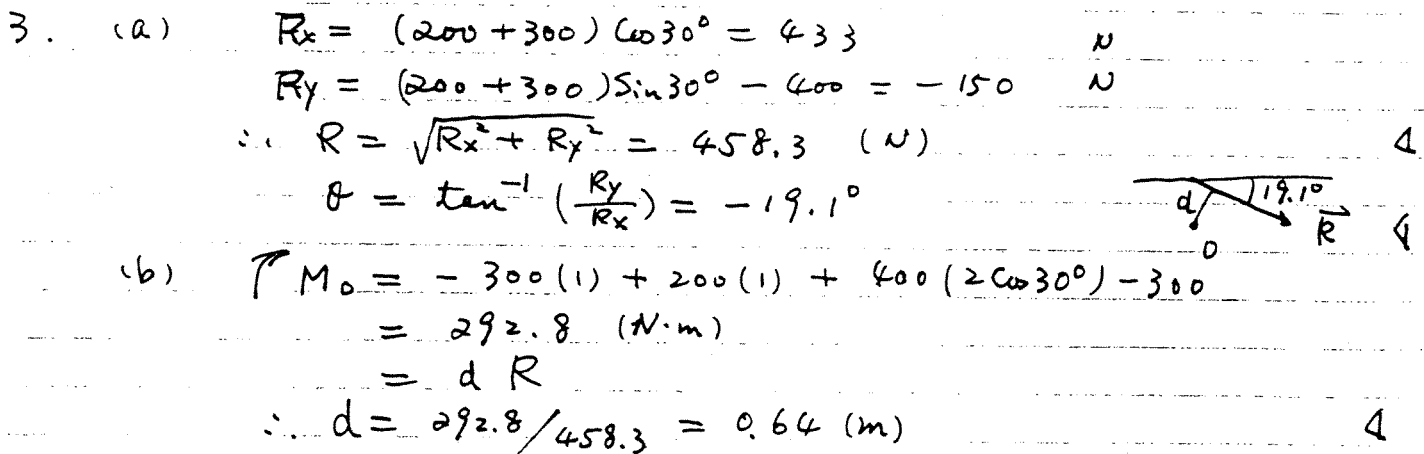 3. (a) Rx = (200 + 300) Cos 30° = 433 N
Ry = (200 + 300) Sin 30° - 400 = -150 N
∴ R = √(Rx² + Ry²) = 458.3 (N)
θ = tan⁻¹ (Ry/Rx) = -19.1°
d 19.1° R⃗
O
(b) M₀ = - 300 (1) + 200 (1) + 400 (2 Cos 30°) - 300
= 292.8 (N·m)
= d R
∴ d = 292.8/458.3 = 0.64 (m)